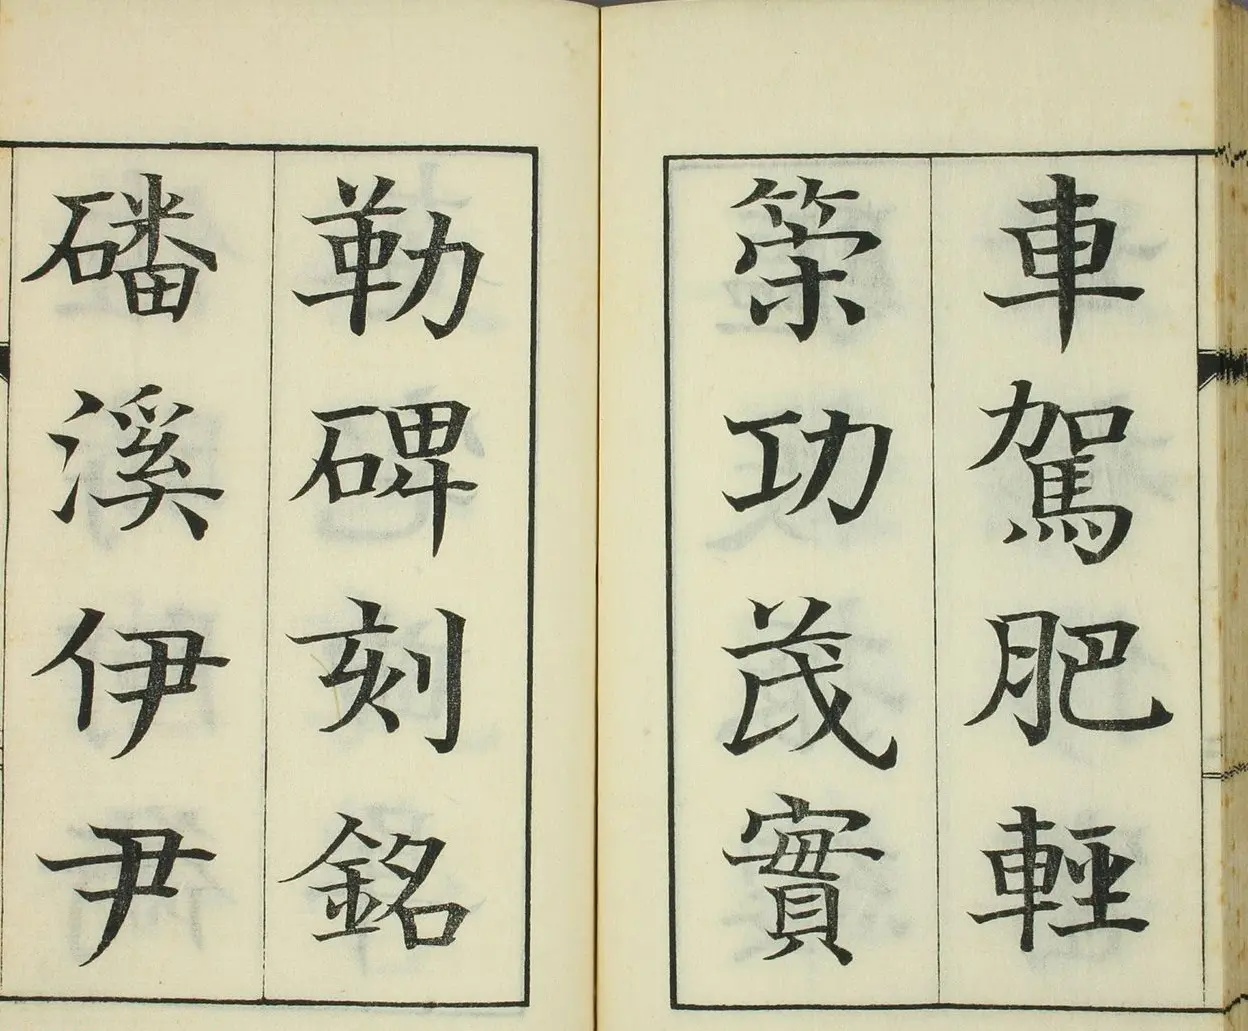 車駕肥輕
策功茂實
勒碑刻銘
磻溪伊尹